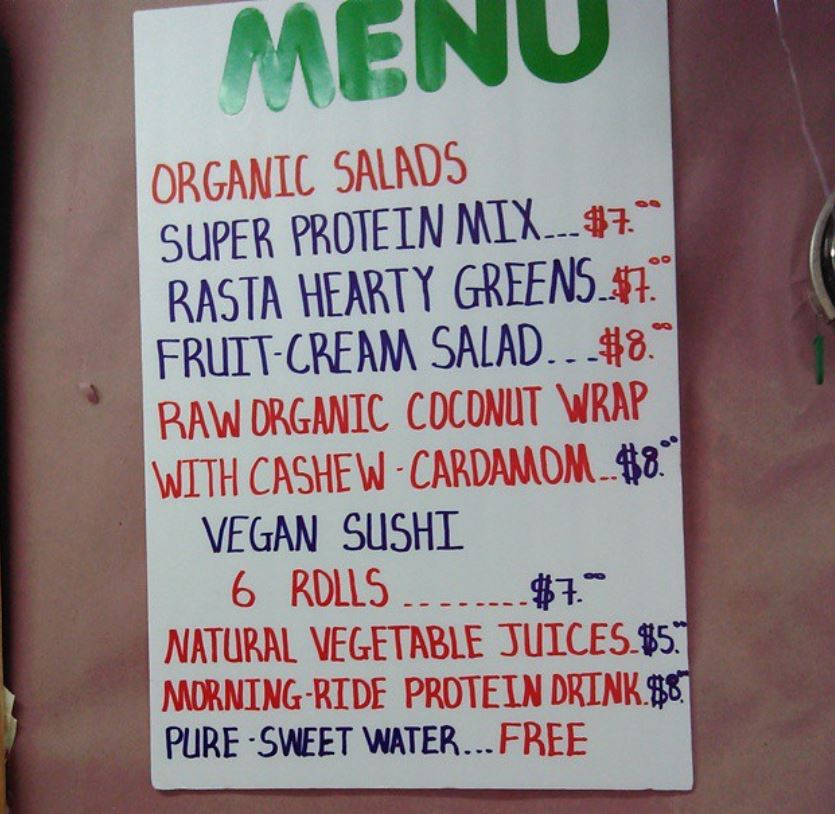 MENU
ORGANIC SALADS
SUPER PROTEIN MIX...$7.00
RASTA HEARTY GREENS..$7.00
FRUIT-CREAM SALAD...$8.00
RAW ORGANIC COCONUT WRAP
WITH CASHEW-CARDAMOM..$8.00
VEGAN SUSHI
6 ROLLS .........$7.00
NATURAL VEGETABLE JUICES.$5.00
MORNING-RIDE PROTEIN DRINK.$8.00
PURE-SWEET WATER...FREE